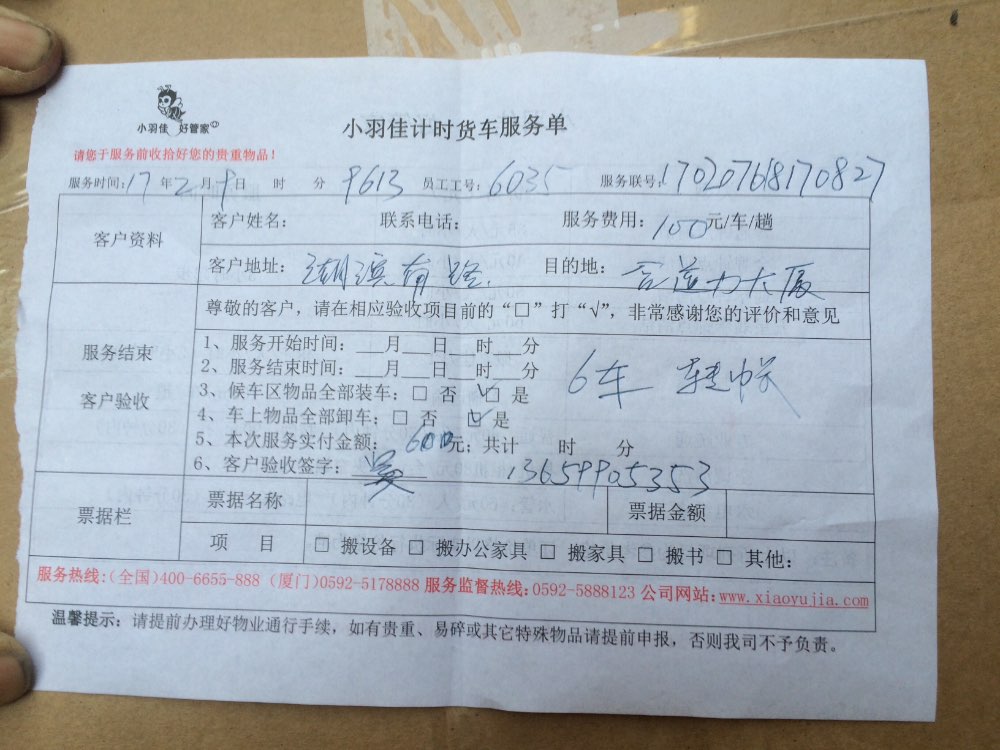 小羽佳 好管家
小羽佳计时货车服务单
请您于服务前收拾好您的贵重物品！
服务时间:17年2月9日 时 分 9613 员工工号:6035 服务联号:17020768170827
客户资料
客户姓名： 联系电话： 服务费用：100元/车/趟
客户地址：湖滨南路 目的地：大厦
尊敬的客户，请在相应验收项目前的“□”打“√”，非常感谢您的评价和意见
服务结束
客户验收
1、服务开始时间：___月___日___时___分
2、服务结束时间：___月___日___时___分
3、候车区物品全部装车：□ 否 ☑ 是
4、车上物品全部卸车；□ 否 ☑ 是
6车
5、本次服务实付金额：600元；共计 时 分
6、客户验收签字：吴 13659905353
票据栏
票据名称 票据金额
项 目 □ 搬设备 □ 搬办公家具 □ 搬家具 □ 搬书 □ 其他：
服务热线:(全国)400-6655-888 (厦门)0592-5178888 服务监督热线:0592-5888123 公司网站:www.xiaoyujia.com
温馨提示：请提前办理好物业通行手续，如有贵重、易碎或其它特殊物品请提前申报，否则我司不予负责。